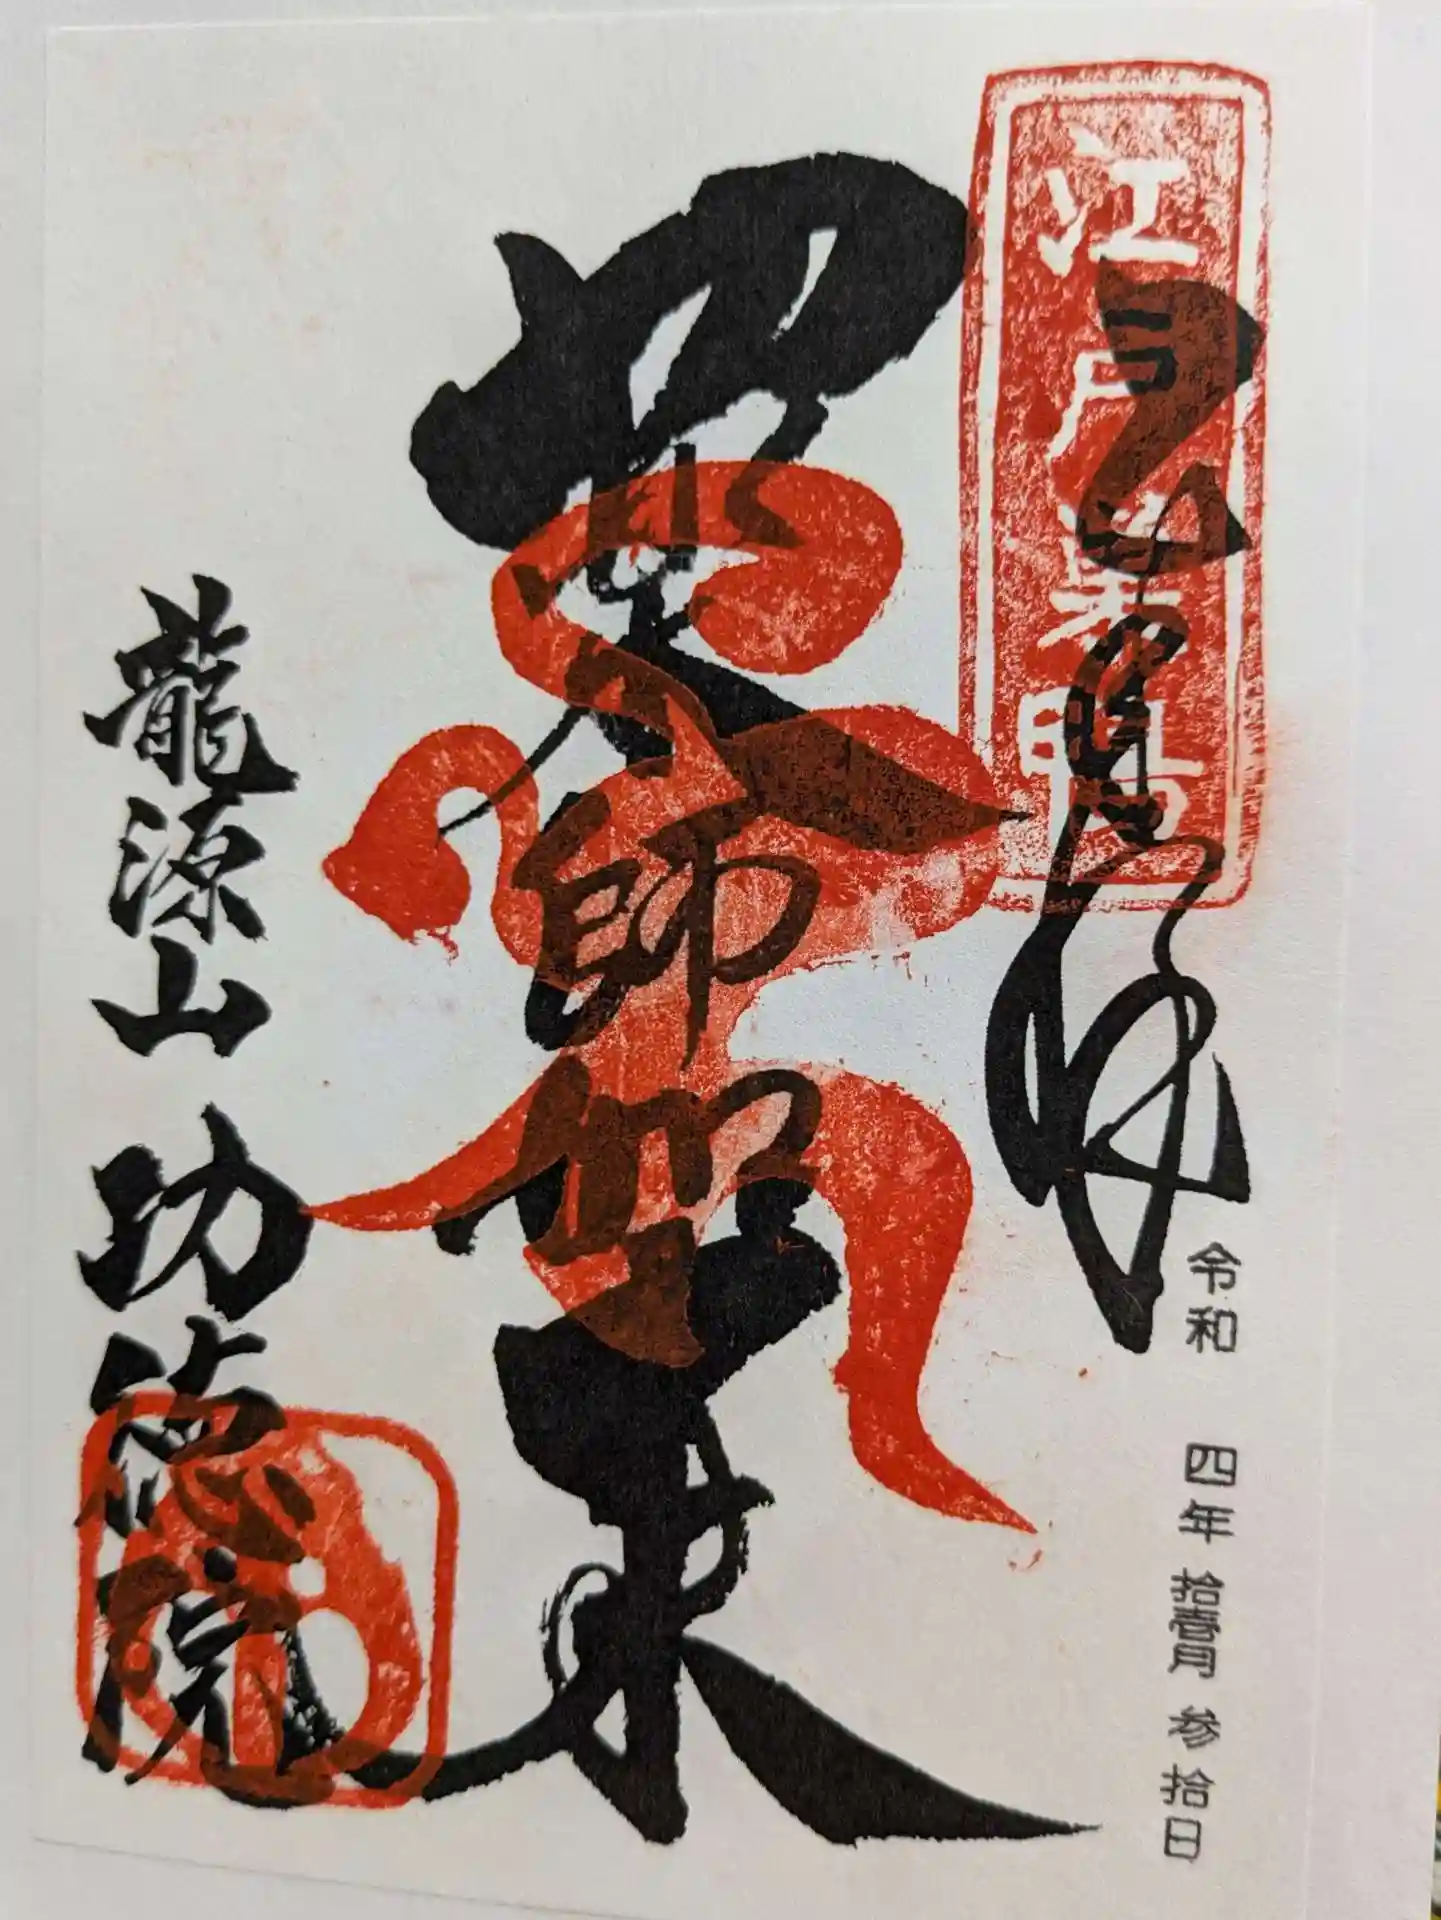 江戸巣鴨
奉拝
令和 四年 拾壹月 参拾日
薬師如来
龍源山 功徳院